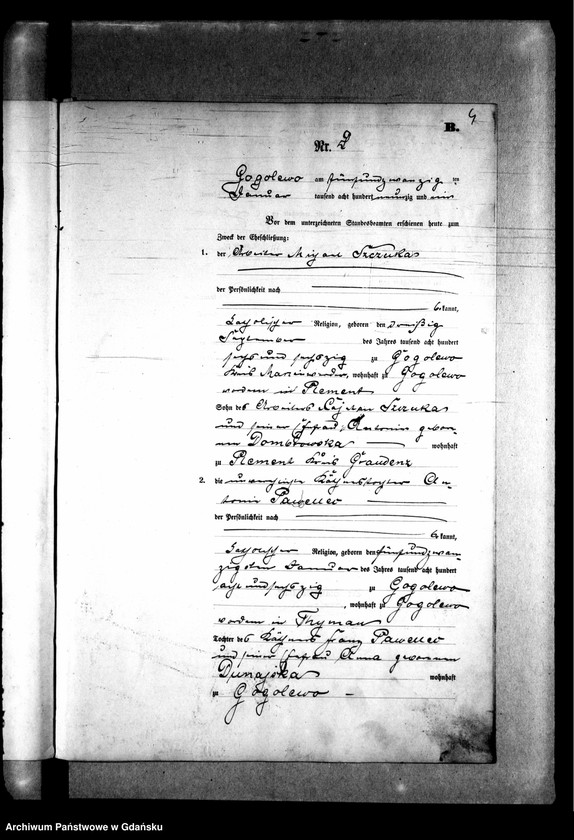 4
B.
Nr. 9
Gogolewo am fünfundzwanzig ten
Januar tausend acht hundert neunzig und ein
Vor dem unterzeichneten Standesbeamten erschienen heute zum
Zweck der Eheschließung:
1. der Arbeiter Michael Szczukas
der Persönlichkeit nach
kannt,
katholischer Religion, geboren den dreißig
September des Jahres tausend acht hundert
sechs und sechszig zu Gogolewo
Kreis Marienwerder, wohnhaft zu Gogolewo
vordem in Plement
Sohn des Arbeiters Szczukas
und seiner Ehefrau Antonie gebor-
nen Dombrowska wohnhaft
zu Plement Kreis Graudenz
2. die unverehelichte Käthnertochter An-
tonie Pawelec
der Persönlichkeit nach
kannt,
katholischer Religion, geboren den fünfundzwan-
zigsten Januar des Jahres tausend acht hundert
acht und sechszig zu Gogolewo
, wohnhaft zu Gogolewo
vordem in Thymau
Tochter des Käthners Franz Pawelec
und seiner Ehefrau Anna geborenen
Dunajska wohnhaft
zu Gogolewo
Archiwum Państwowe w Gdańsku